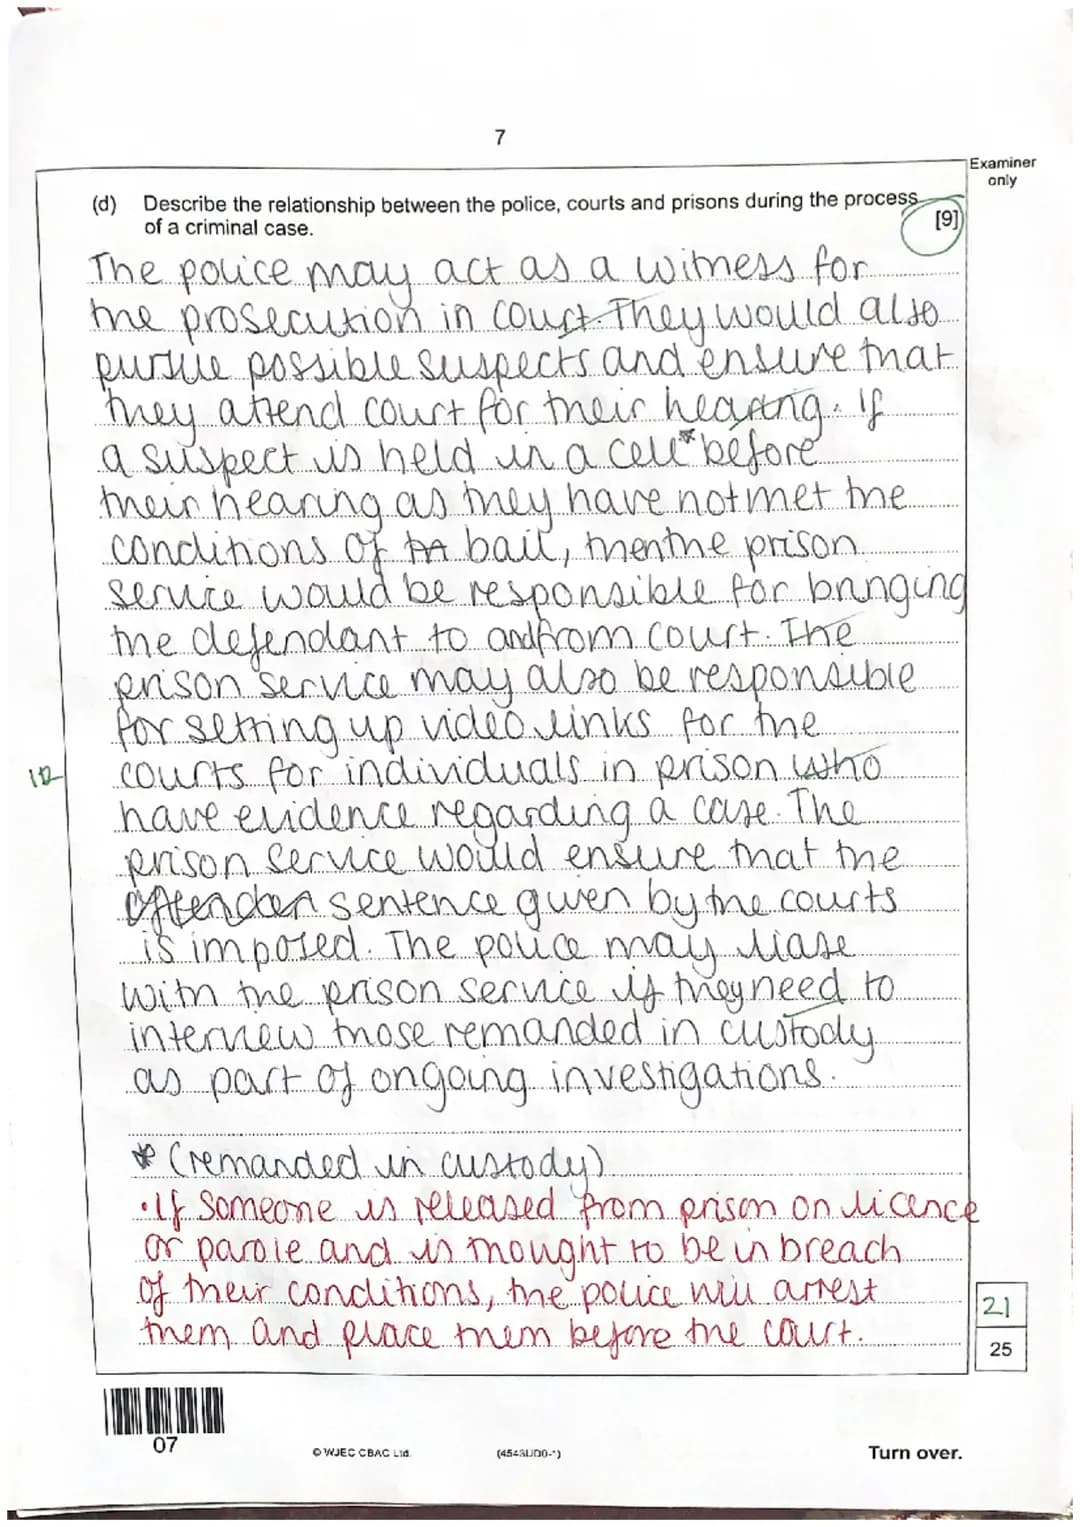 7
Examiner
only
(d) Describe the relationship between the police, courts and prisons during the process
of a criminal case.
[9]
The police may act as a witness for
the prosecution in court. They would also
pursue possible suspects and ensure that
they attend court for their hearing. If
a suspect is held in a cell* before
their hearing as they have not met the
conditions of bail, then the prison
service would be responsible for bringing
the defendant to and from court. The
prison service may also be responsible
for setting up video links for the
courts for individuals in prison who
have evidence regarding a case. The
prison service would ensure that the
sentence given by the courts
is imposed. The police may liase
with the prison service if they need to
interview those remanded in custody
as part of ongoing investigations.
* (remanded in custody)
• If someone is released from prison on licence
or parole and is thought to be in breach
of their conditions, the police will arrest
them and place them before the court.
21
25
07
© WJEC CBAC Ltd.
Turn over.